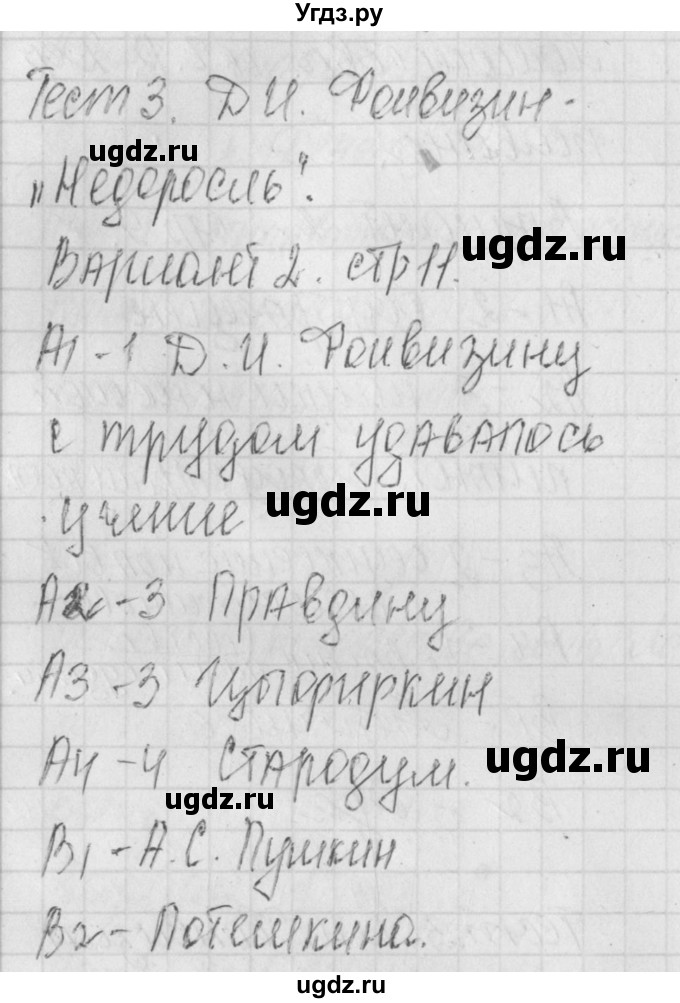 Угдз.ру
Тест 3. Д И. Фонвизин -
ugdz.ru
„Недоросль".
ugdz.ru
Вариант 2. стр 11.
А1 - 1 Д. И. Фонвизину
с трудом удавалось
учение
ugdz.ru
А2 - 3 Правдину
А3 - 3 Цыфиркин
А4 - 4 Стародум.
ugdz.ru
ugdz.ru
В1 - А. С. Пушкин
В2 - Потемкина.
ugdz.ru